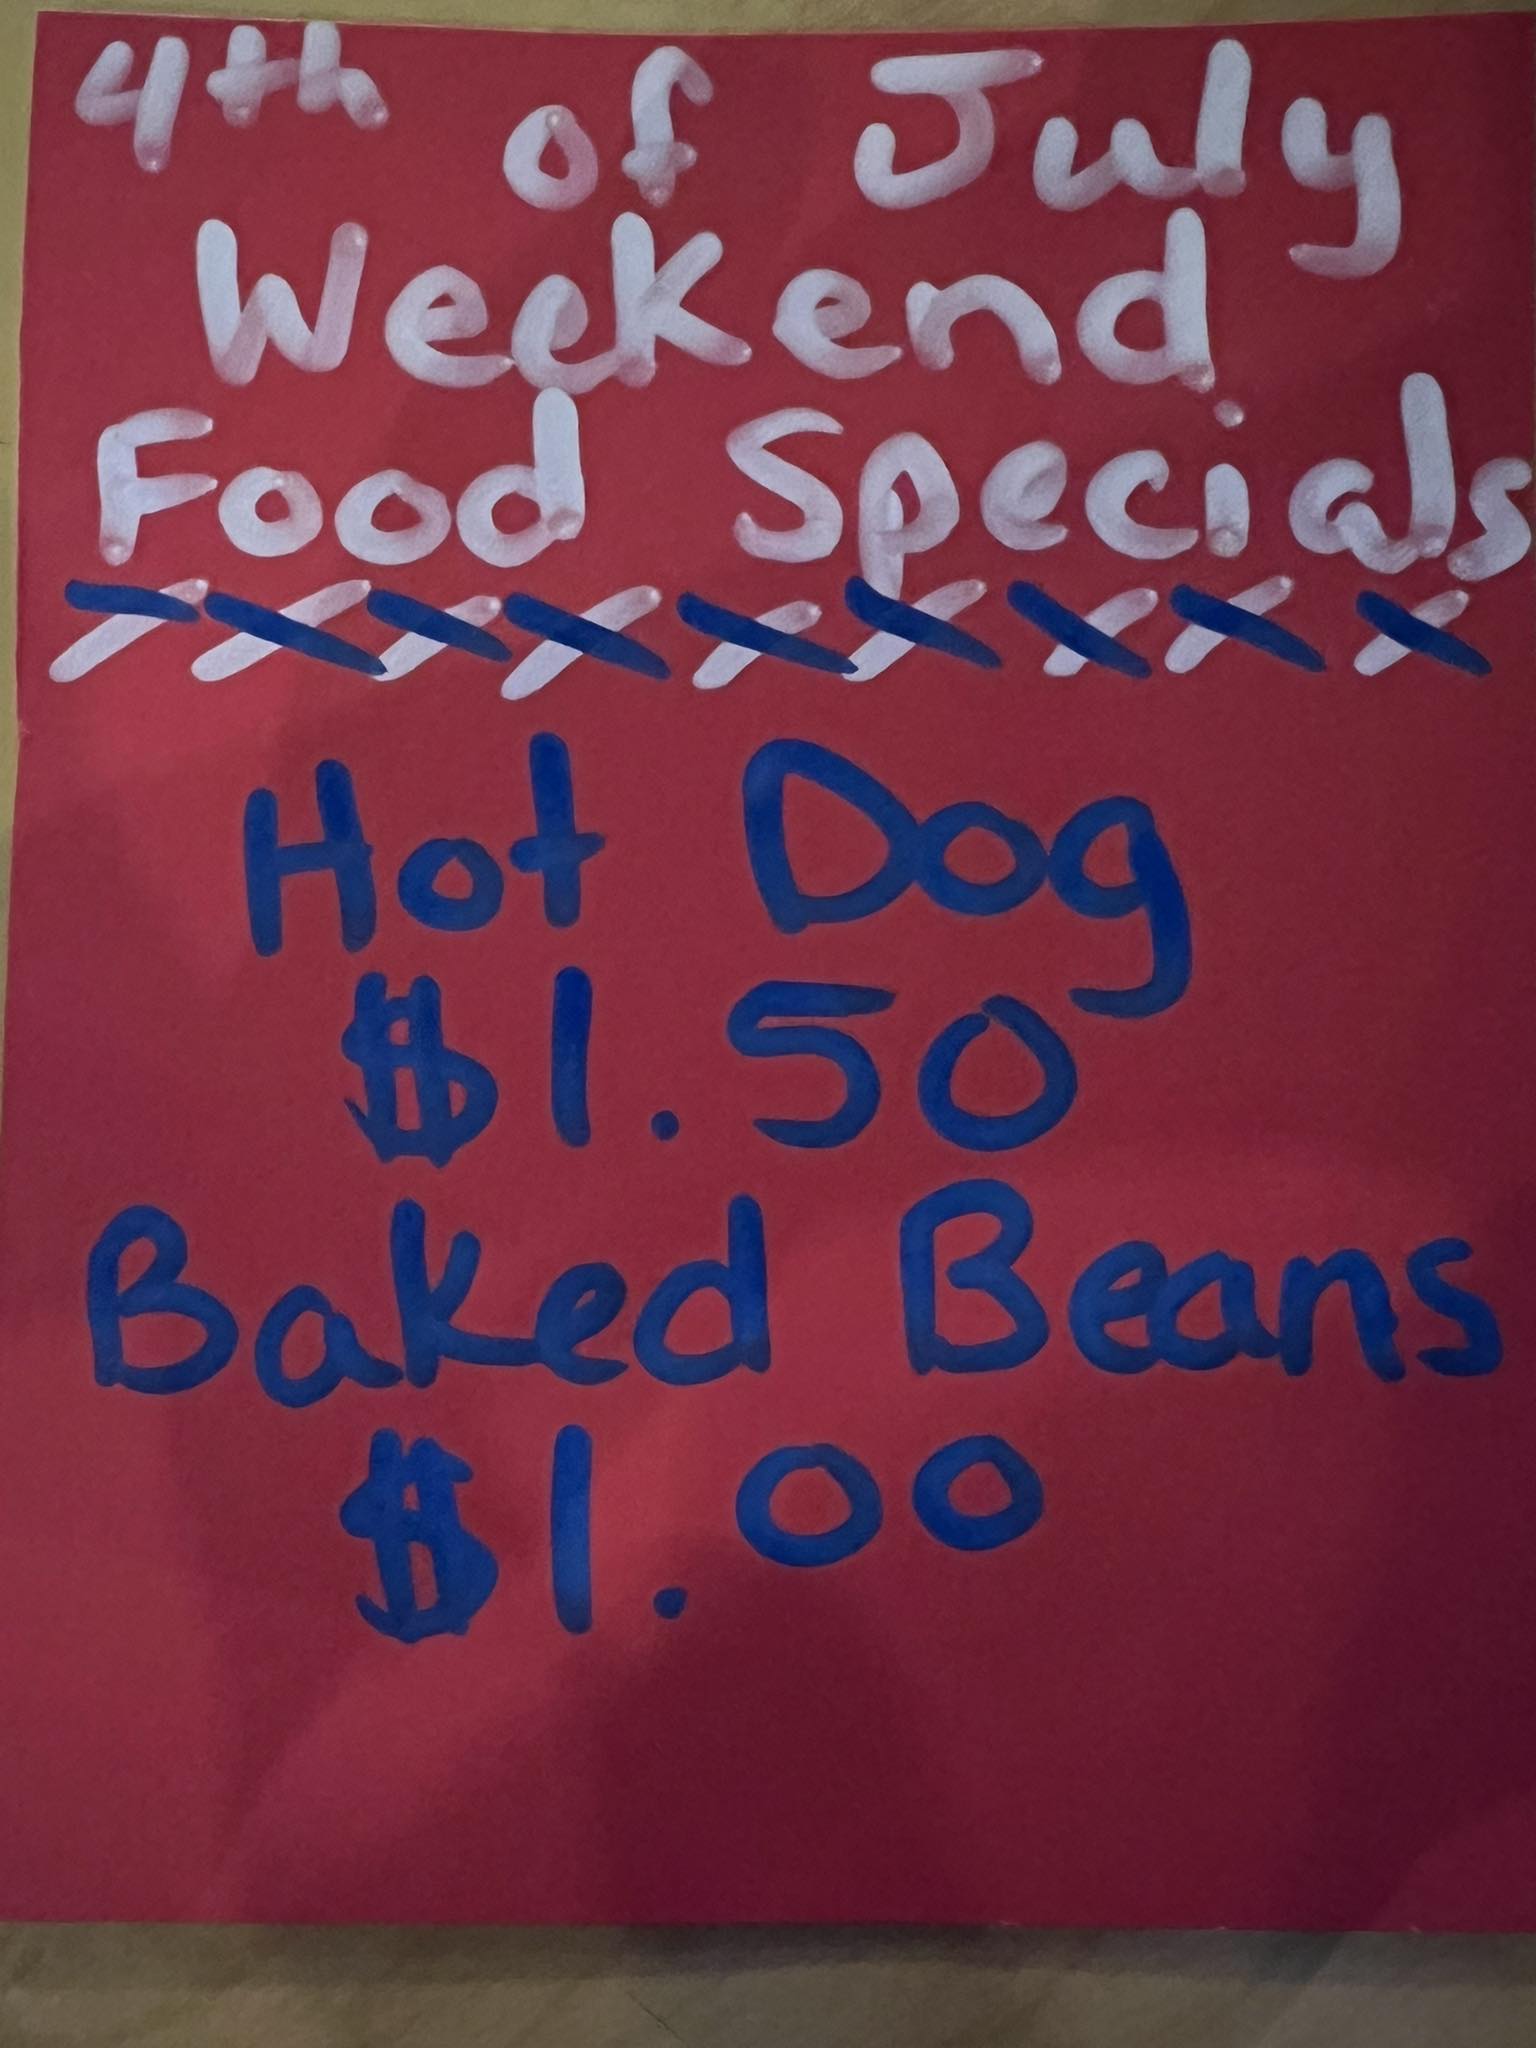 4th of July
Weekend
Food Specials
Hot Dog
$1.50
Baked Beans
$1.00